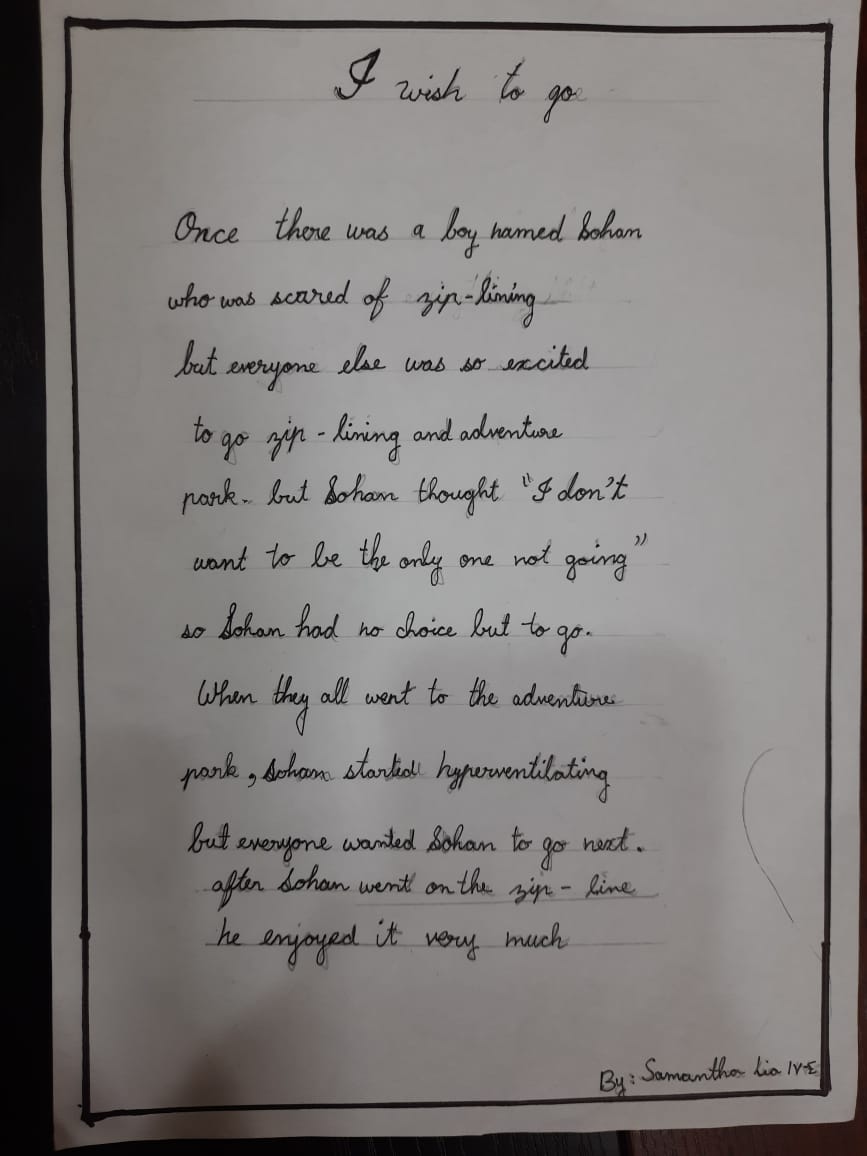 I wish to go
Once there was a boy named Sohan
who was scared of zip-lining
but everyone else was so excited
to go zip - lining and adventure
park. but Sohan thought "I don't
want to be the only one not going"
so Sohan had no choice but to go.
When they all went to the adventure
park, Sohan started hyperventilating
but everyone wanted Sohan to go next.
after Sohan went on the zip - line
he enjoyed it very much
By: Samantha Lia IV-E